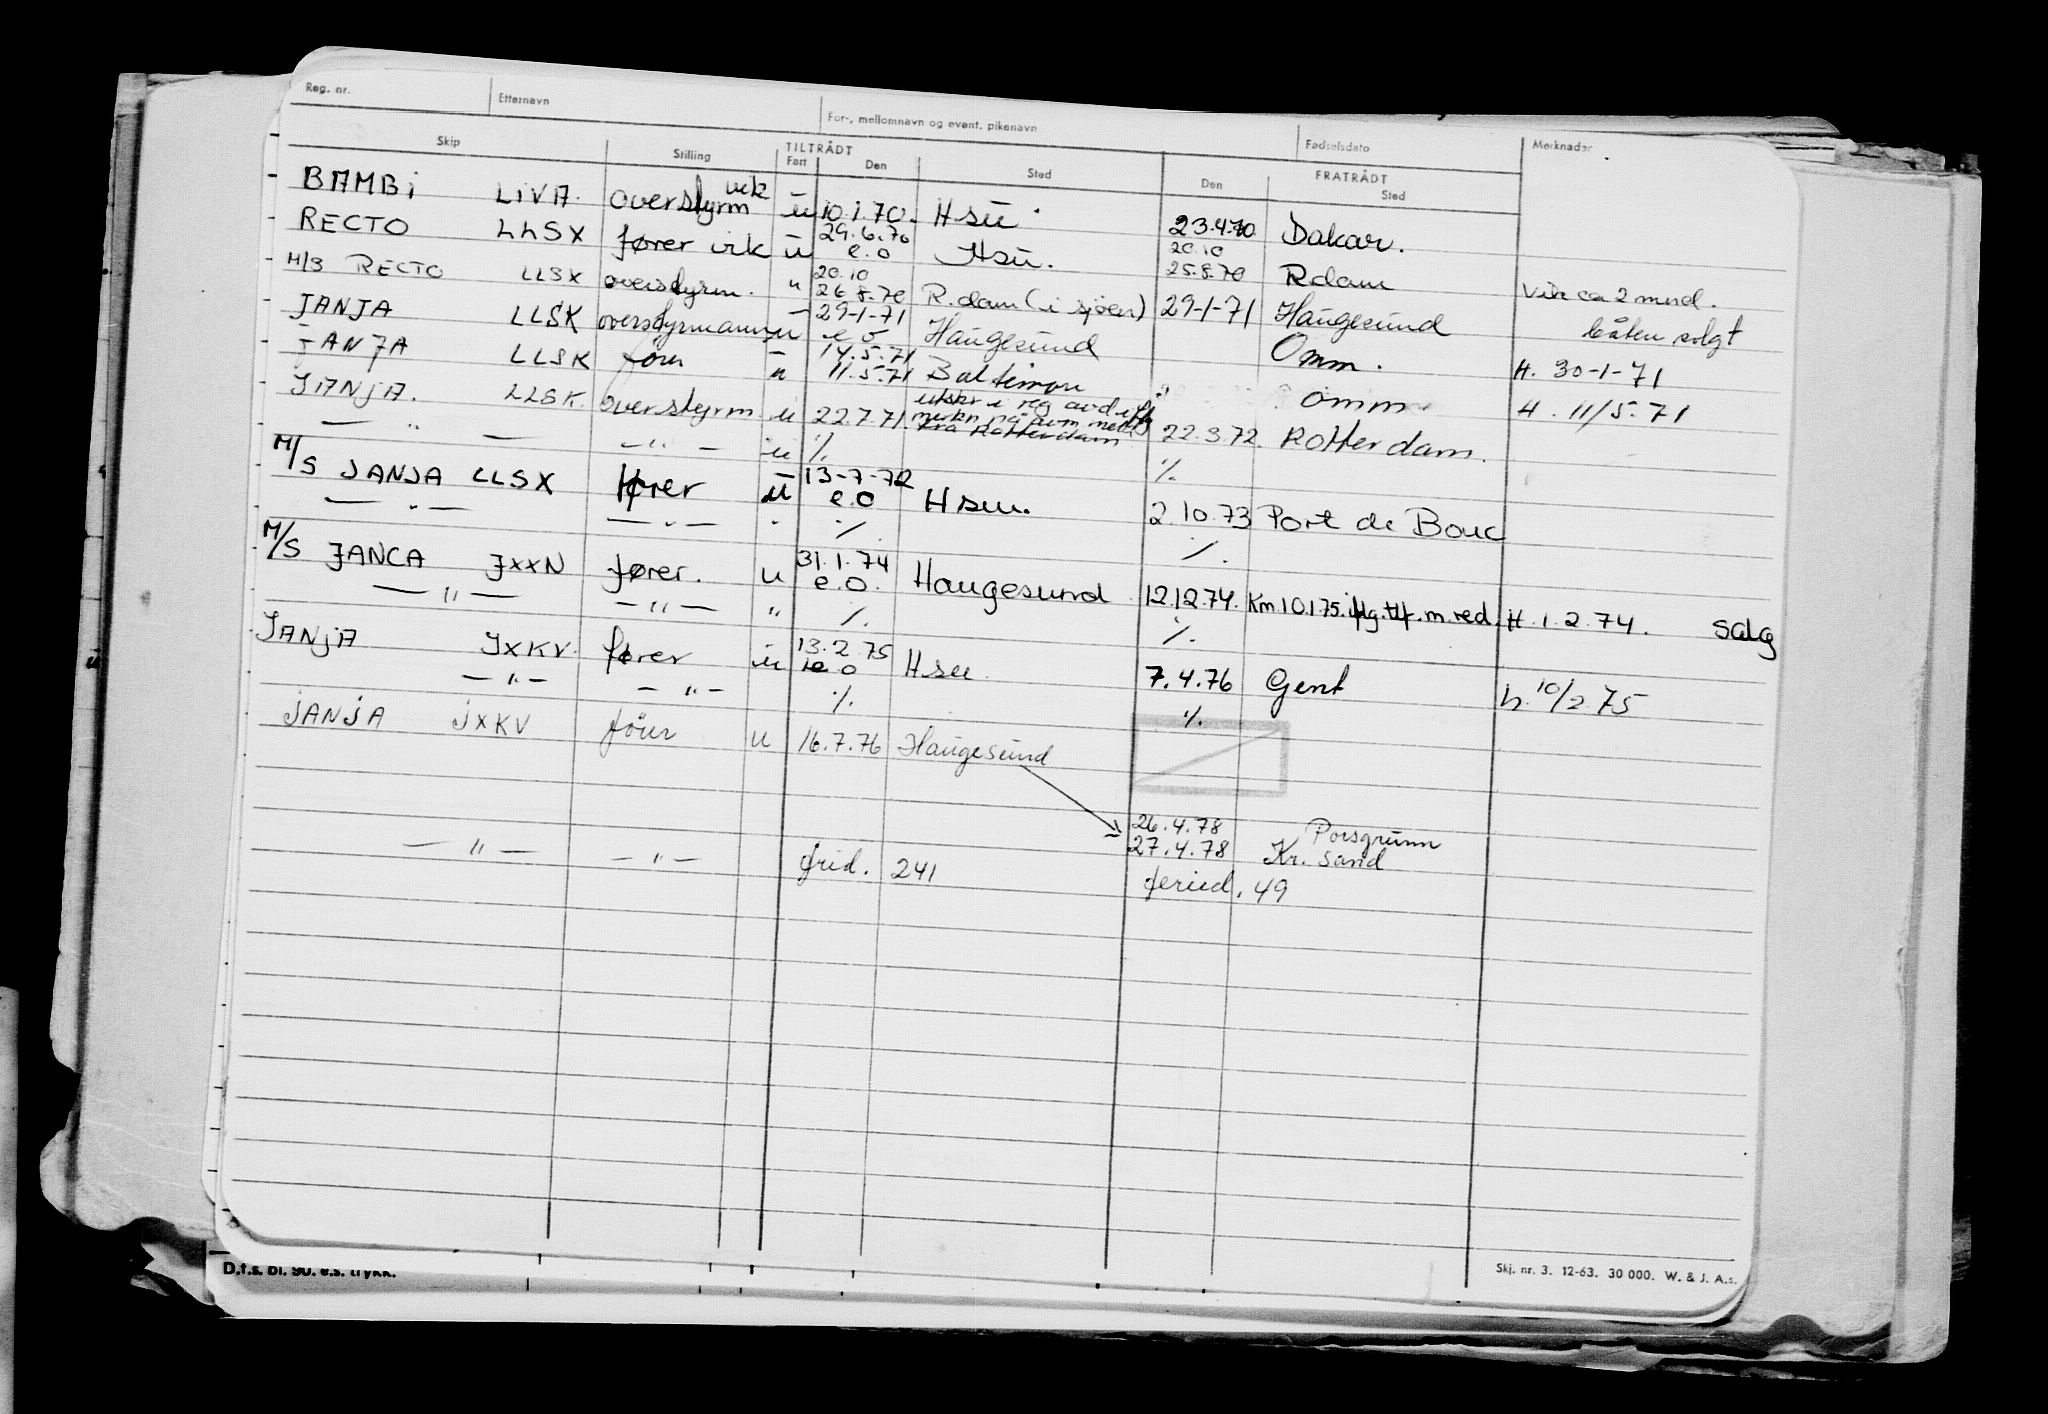 Reg. nr. Etternavn For-, mellomnavn og event. pikenavn Fødselsdato Merknader
Skip Stilling TILTRÅDT Fart Den Sted FRATRÅDT Den Sted
BAMBi LiVA. overstyrm vik ū 10.1.70. Hsū. 23.4.70 Dakar.
RECTO LLSX fører vik ū 29.6.70 e.o Hsū. 20.10 25.8.70 Rdam
M/S RECTO LLSX overstyrm. " 20.10 26.8.70 R.dam (i sjøen) 29-1-71 Haugesund Vik ca 2 mnd. båten solgt
JANJA LLSK overstyrmann u 29-1-71 e o Haugesund Omm. H. 30-1-71
JANJA LLSK fører u 14.5.71 11.5.71 Baltimore " Omm H. 11/5.71
JANjA. LLSK. overstyrm. u 22.7.71. utskr i reg avd iflg merkn på avm. meld fra Rotterdam 22.3.72. Rotterdam.
— " — — " — u ./. ./.
M/S JANJA LLSX fører ū 13-7-72 e.o Hsu. 2.10.73 Port de Bouc
— " — — " — " ./. ./.
M/S JANCA JXXN fører. u 31.1.74 e.o. Haugesund 12.12.74. Km 10.1.75. iflg. tlf. m. red. H. 1.2.74. Salg
— " — — " — " ./. ./.
JANjA JXKV. fører u 13.2.75 e.o Hsu. 7.4.76 Gent h. 10/2 75
— " — — " — ./. ./.
jANjA jXKV fører u 16.7.76 Haugesund
26.4.78 Porsgrunn
— " — — " — 27.4.78 Kr. sand
frid. 241 feried. 49
D.f.s. bl. 90. e.s. trykk.
Skj. nr. 3. 12-63. 30 000. W. & J. A.s.